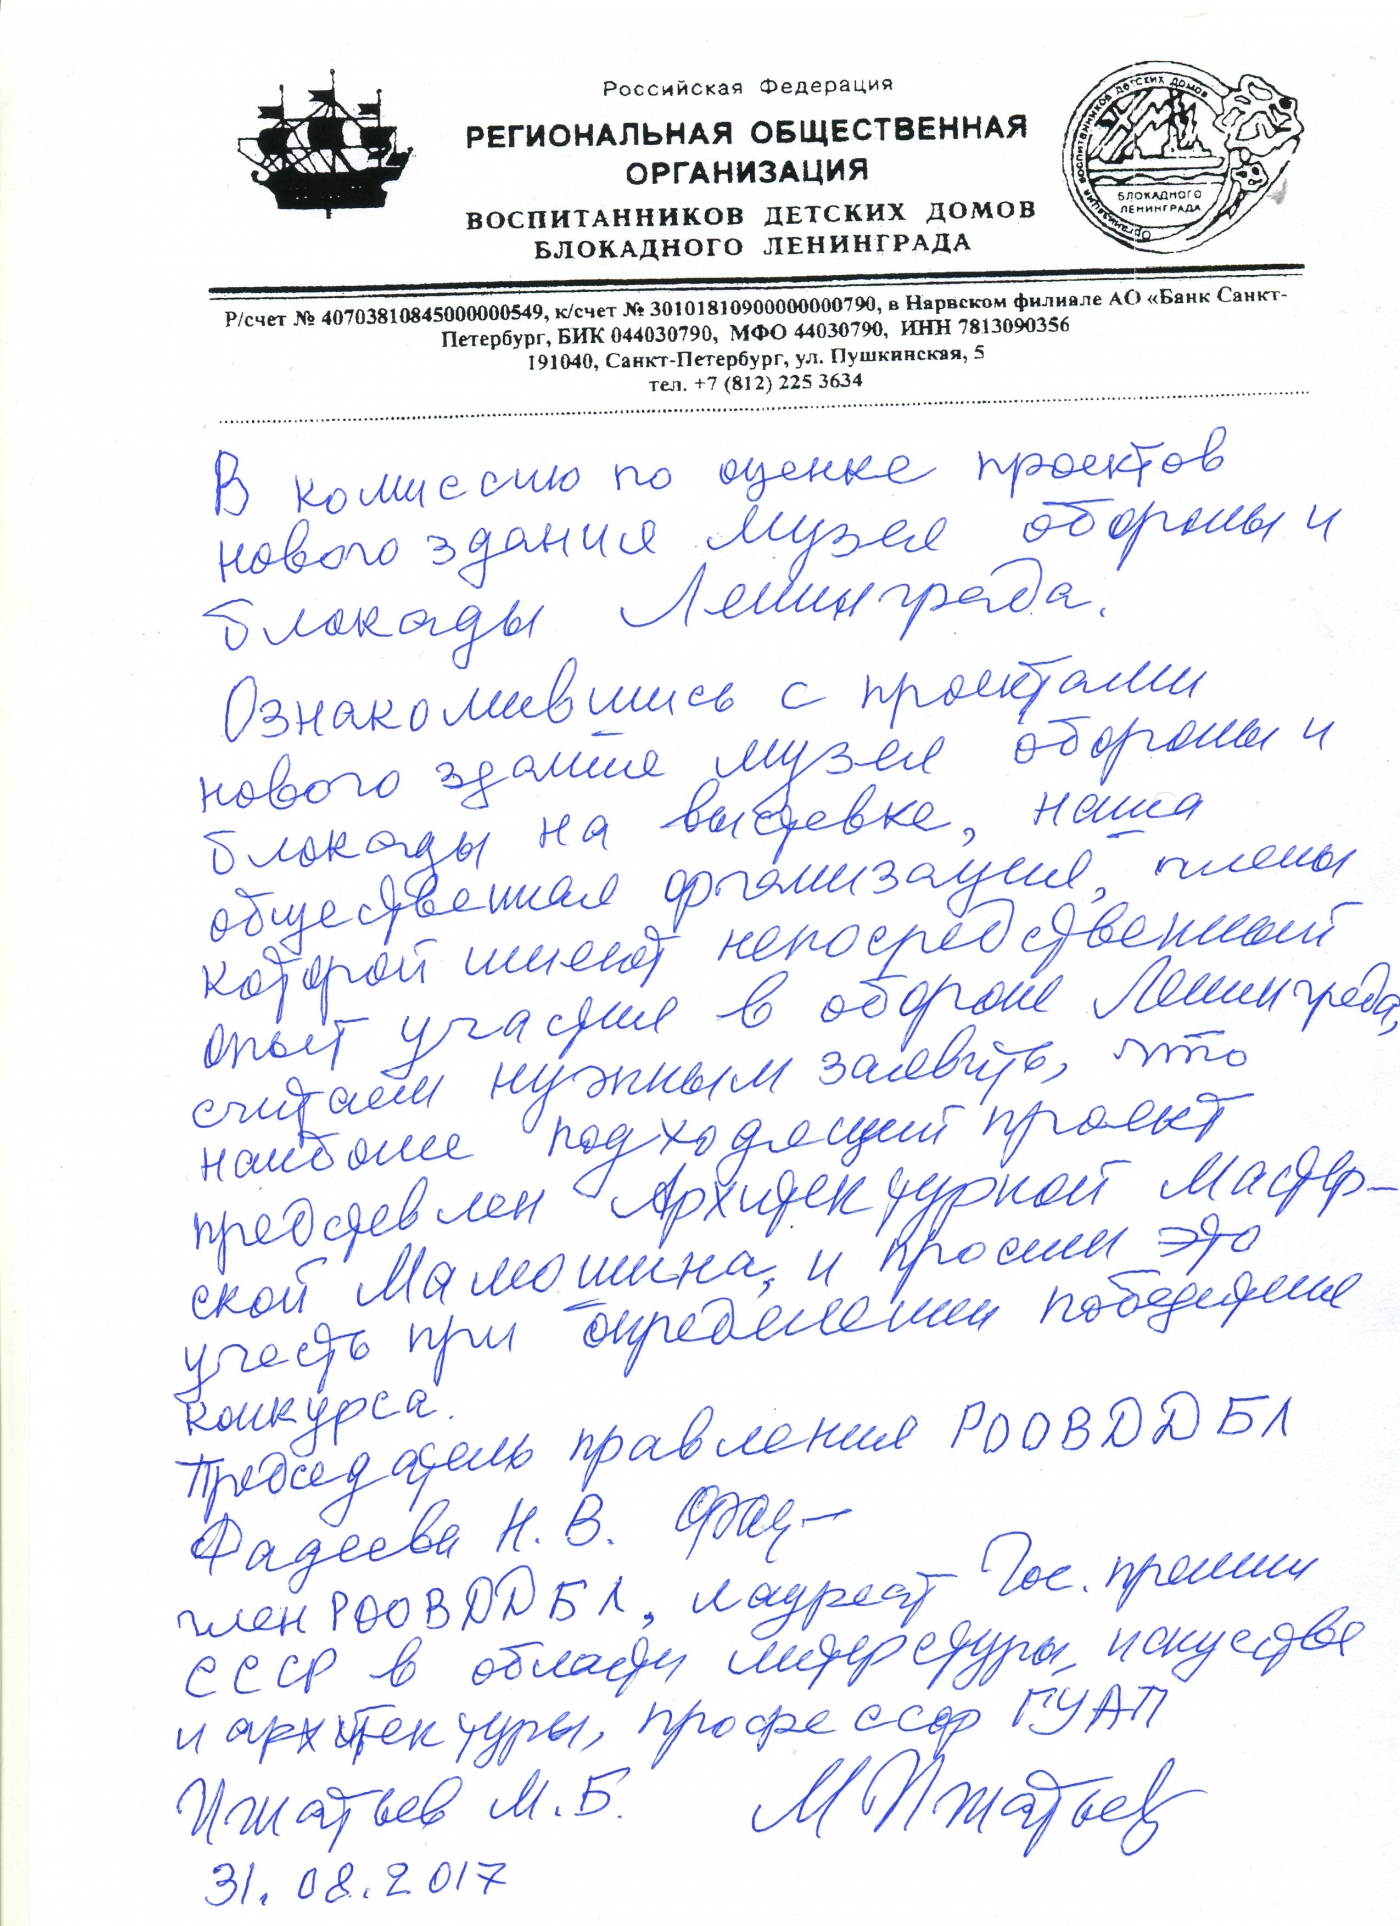 Российская Федерация
РЕГИОНАЛЬНАЯ ОБЩЕСТВЕННАЯ
ОРГАНИЗАЦИЯ
ВОСПИТАННИКОВ ДЕТСКИХ ДОМОВ
БЛОКАДНОГО ЛЕНИНГРАДА
Организация воспитанников детских домов
БЛОКАДНОГО
ЛЕНИНГРАДА
Р/счет № 40703810845000000549, к/счет № 30101810900000000790, в Нарвском филиале АО «Банк Санкт-
Петербург, БИК 044030790, МФО 44030790, ИНН 7813090356
191040, Санкт-Петербург, ул. Пушкинская, 5
тел. +7 (812) 225 3634
В комиссию по оценке проектов
нового здания музея обороны и
блокады Ленинграда.
Ознакомившись с проектами
нового здания музея обороны и
блокады на выставке, наша
общественная организация, члены
которой имеют непосредственный
опыт участия в обороне Ленинграда,
считаем нужным заявить, что
наиболее подходящий проект
представлен Архитектурной Мастер-
ской Мамошина, и просим это
учесть при определении победителя
конкурса.
Председатель правления РООВДДБЛ
Фадеева Н. В.
член РООВДДБЛ, лауреат Гос. премии
СССР в области литературы, искусства
и архитектуры, профессор ГУАП
Игнатьев М.Б. М Игнатьев
31.08.2017